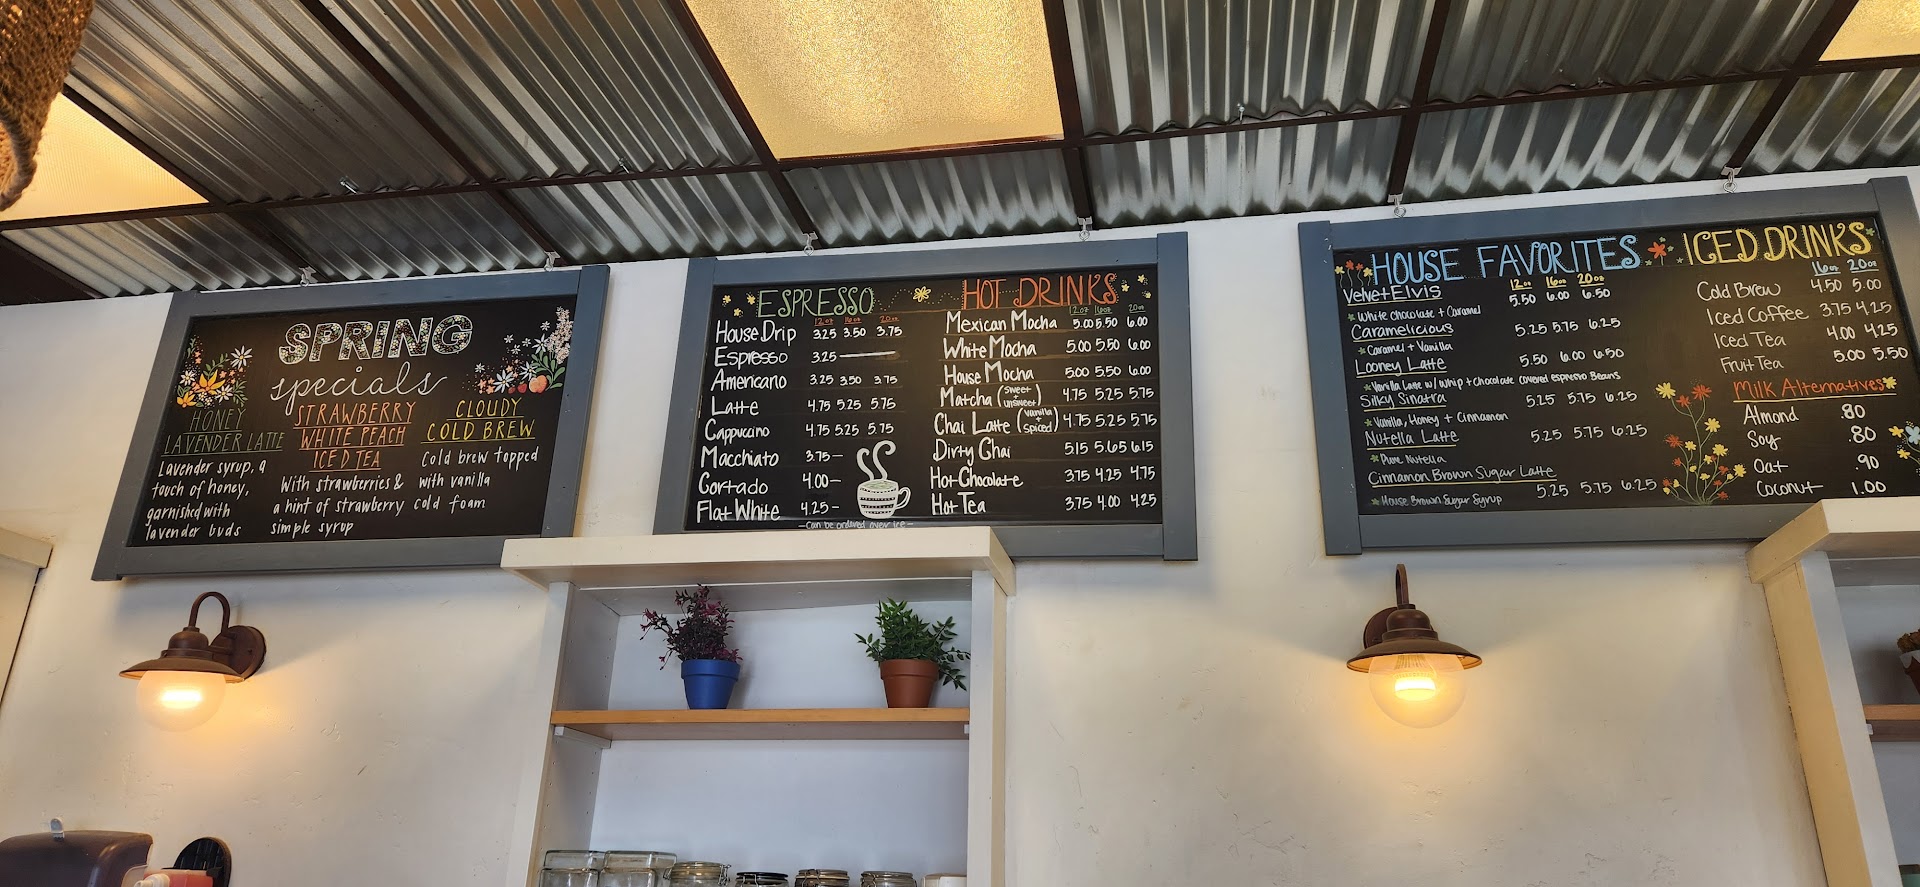 SPRING
specials
HONEY
LAVENDER LATTE
Lavender syrup, a
touch of honey,
garnished with
lavender buds
STRAWBERRY
WHITE PEACH
ICED TEA
With strawberries &
a hint of strawberry
simple syrup
CLOUDY
COLD BREW
Cold brew topped
with vanilla
cold foam
ESPRESSO
12oz 16oz 20oz
House Drip 3.25 3.50 3.75
Espresso 3.25
Americano 3.25 3.50 3.75
Latte 4.75 5.25 5.75
Cappucino 4.75 5.25 5.75
Macchiato 3.75-
Cortado 4.00-
Flat White 4.25-
-Can be ordered over ice-
HOT DRINKS
12oz 16oz 20oz
Mexican Mocha 5.00 5.50 6.00
White Mocha 5.00 5.50 6.00
House Mocha 5.00 5.50 6.00
Matcha (sweet + unsweet) 4.75 5.25 5.75
Chai Latte (vanilla spiced) 4.75 5.25 5.75
Dirty Chai 5.15 5.65 6.15
Hot Chocolate 3.75 4.25 4.75
Hot Tea 3.75 4.00 4.25
HOUSE FAVORITES
12oz 16oz 20oz
Velvet Elvis 5.50 6.00 6.50
White chocolate + Caramel
Caramelicious 5.25 5.75 6.25
Caramel + Vanilla
Looney Latte 5.50 6.00 6.50
Vanilla Latte w/ whip + chocolate covered espresso Beans
Silky Sinatra 5.25 5.75 6.25
Vanilla, Honey + Cinnamon
Nutella Latte 5.25 5.75 6.25
Pure Nutella
Cinnamon Brown Sugar Latte
5.25 5.75 6.25
House Brown Sugar Syrup
ICED DRINKS
16oz 20oz
Cold Brew 4.50 5.00
Iced Coffee 3.75 4.25
Iced Tea 4.00 4.25
Fruit Tea 5.00 5.50
Milk Alternatives
Almond .80
Soy .80
Oat .90
Coconut 1.00